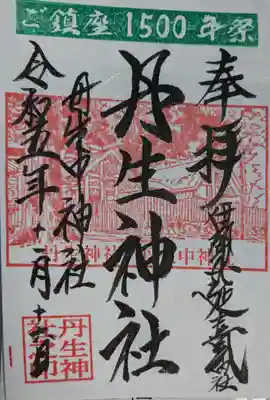 ご鎮座1500年祭
奉拝
伊勢國延喜式内社
丹生神社
丹生中神社
令和五年十一月
丹生神社印